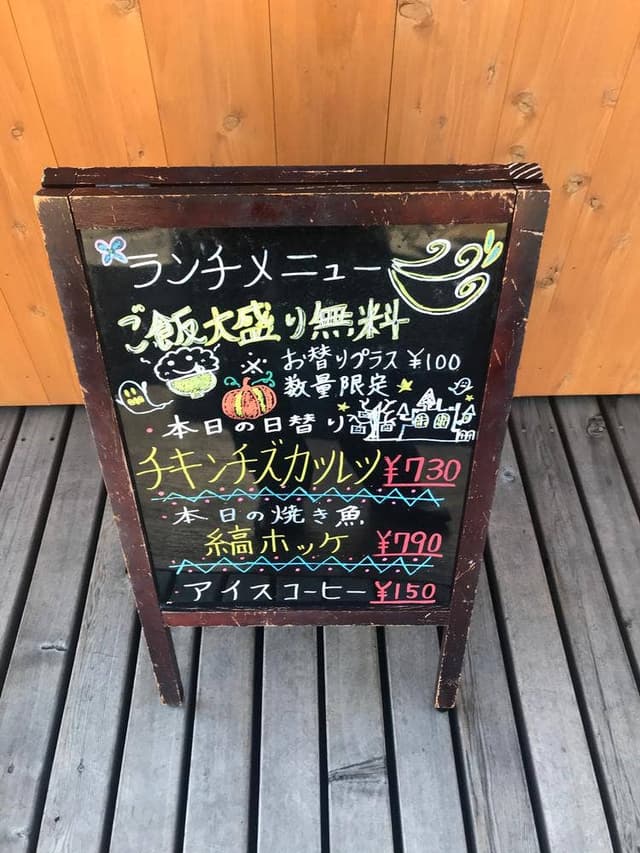 ランチメニュー
ご飯大盛り無料
※ お替りプラス ¥100
数量限定
・本日の日替り
チキンチーズカツレツ ¥730
・本日の焼き魚
縞ホッケ ¥790
・アイスコーヒー ¥150